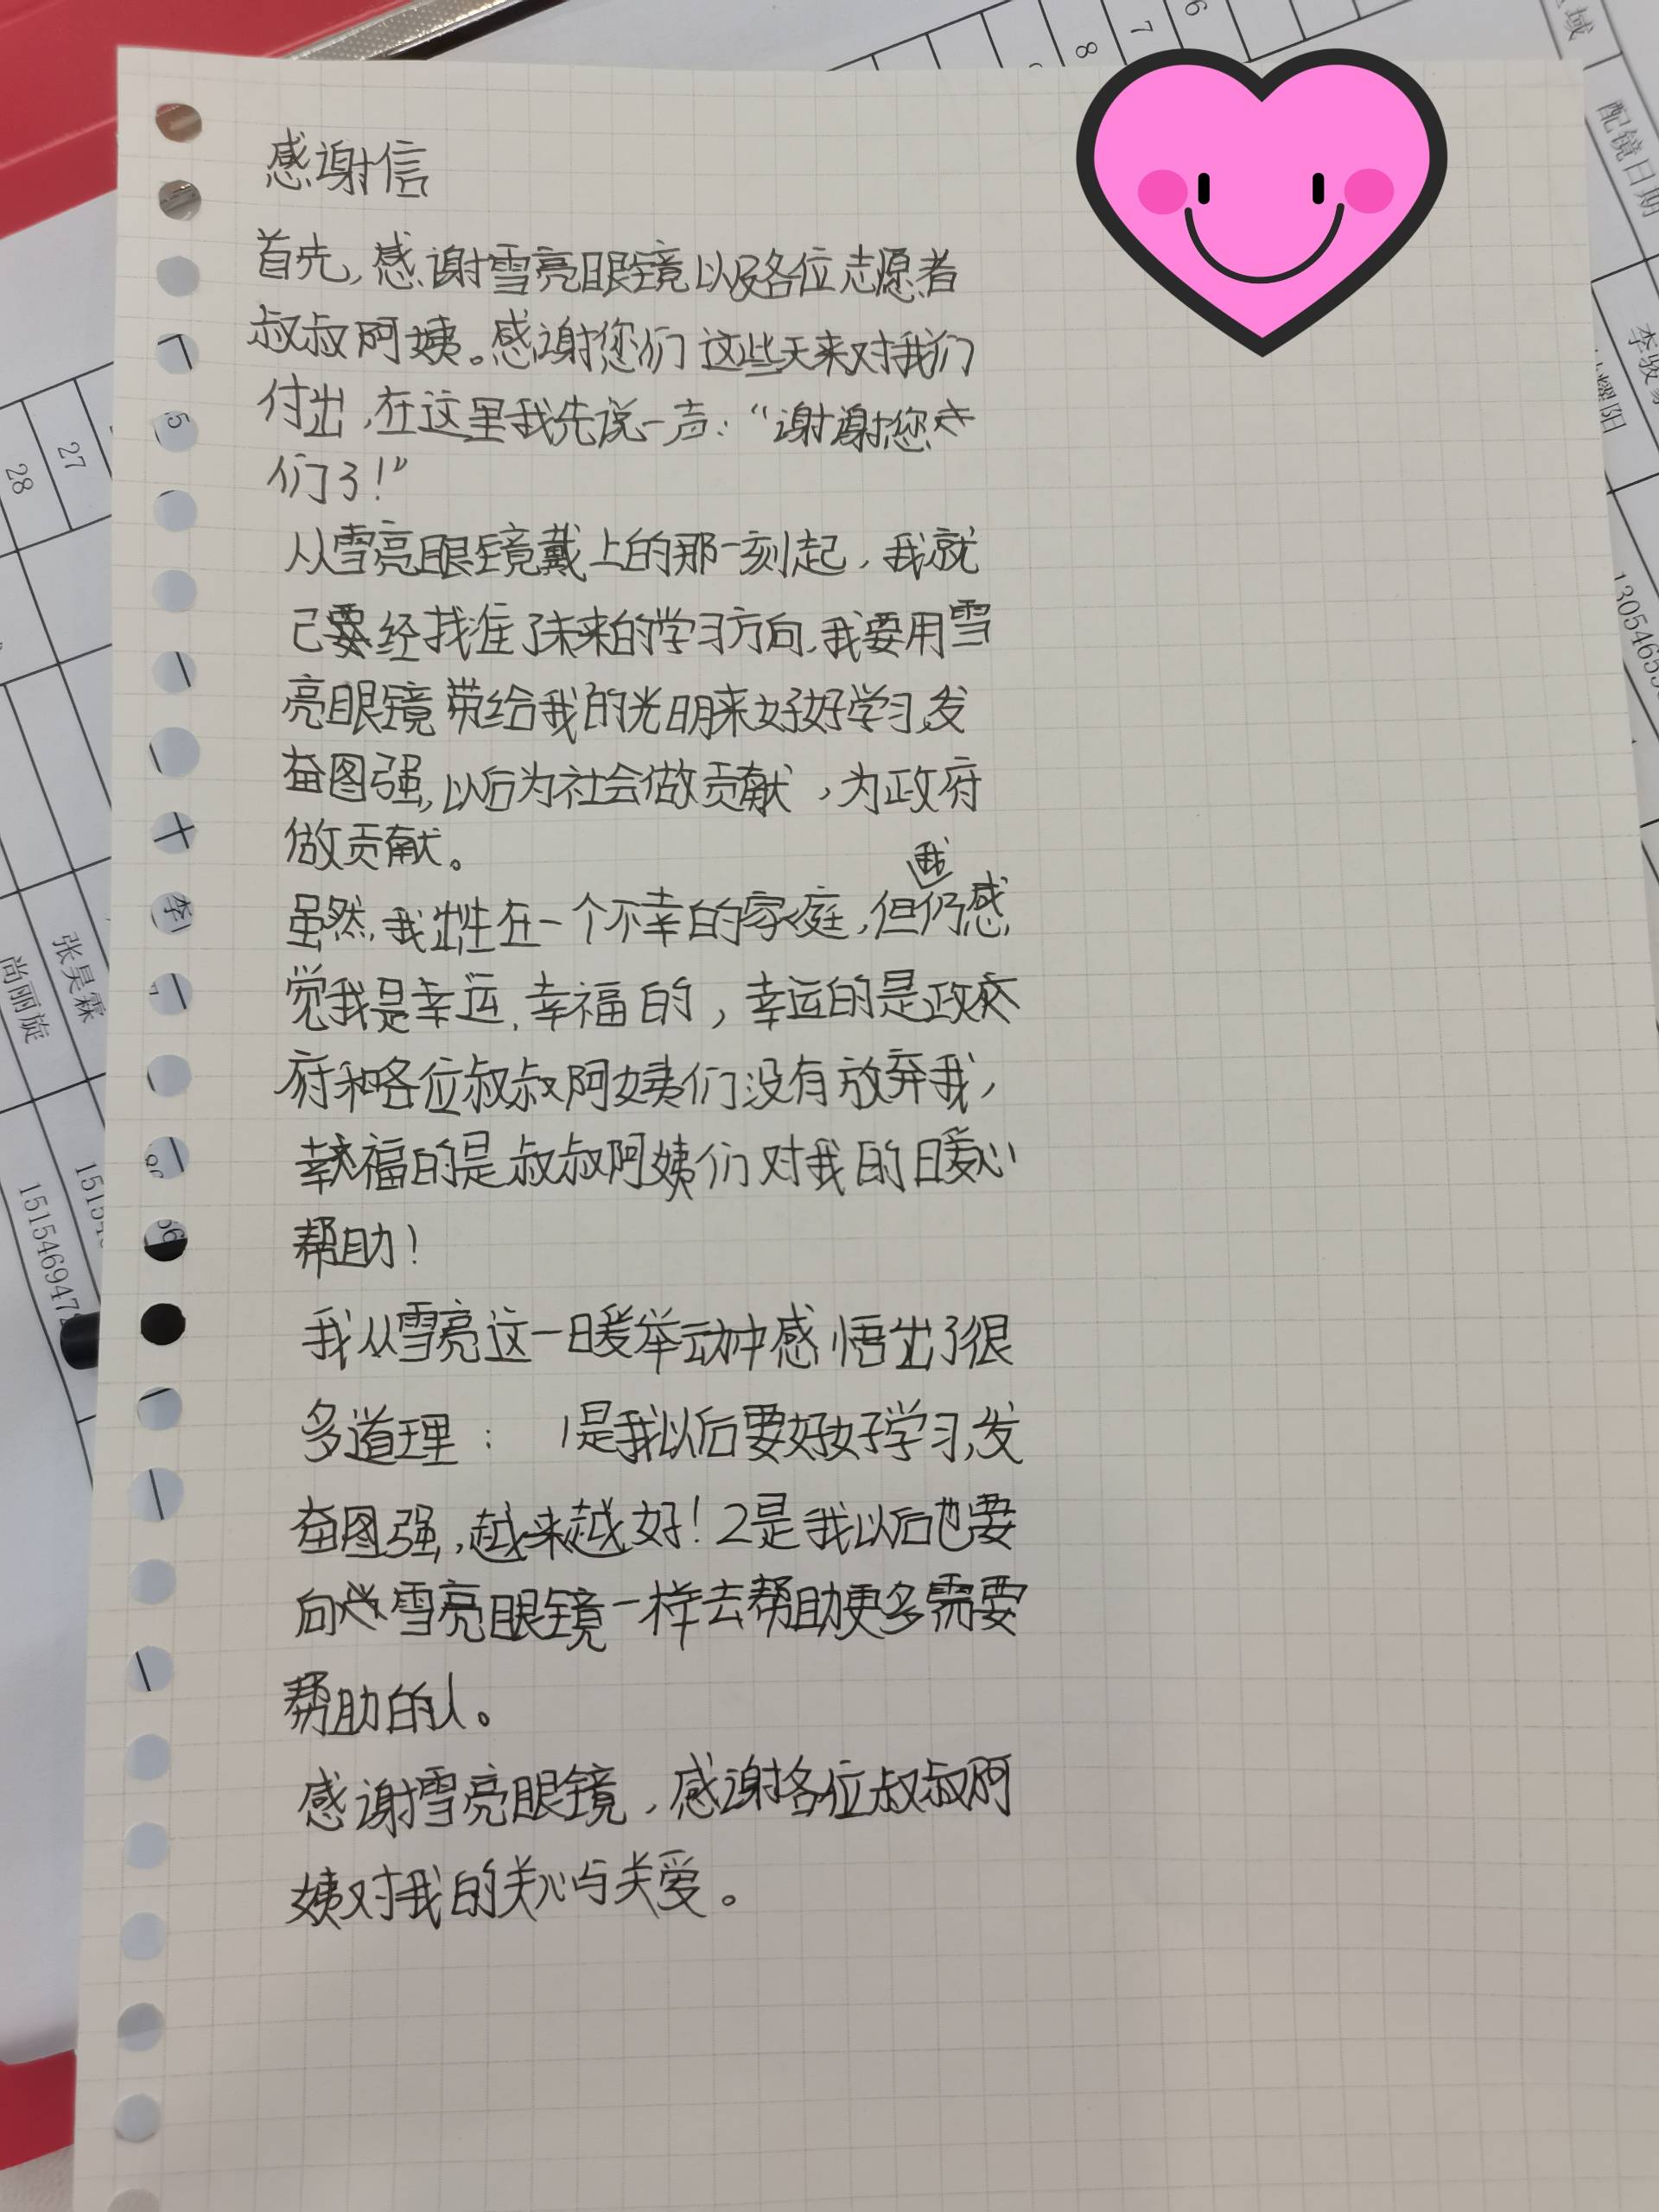 感谢信
首先,感谢雪亮眼镜以及各位志愿者
叔叔阿姨。感谢您们这些天来对我们
付出,在这里我先说一声:“谢谢您
们了!”
从雪亮眼镜戴上的那一刻起,我就
已经找准了未来的学习方向,我要用雪
亮眼镜带给我的光明来好好学习,发
奋图强,以后为社会做贡献,为政府
做贡献。
虽然,我出生在一个不幸的家庭,但我仍感
觉我是幸运、幸福的,幸运的是政
府和各位叔叔阿姨们没有放弃我,
幸福的是叔叔阿姨们对我的暖心
帮助!
我从雪亮这一暖举动中感悟出了很
多道理: 1是我以后要好好学习,发
奋图强,越来越好!2是我以后也要
向雪亮眼镜一样去帮助更多需要
帮助的人。
感谢雪亮眼镜,感谢各位叔叔阿
姨对我的关心与关爱。
6
7
8
配镜日期
27
28
张昊霖
尚丽旋